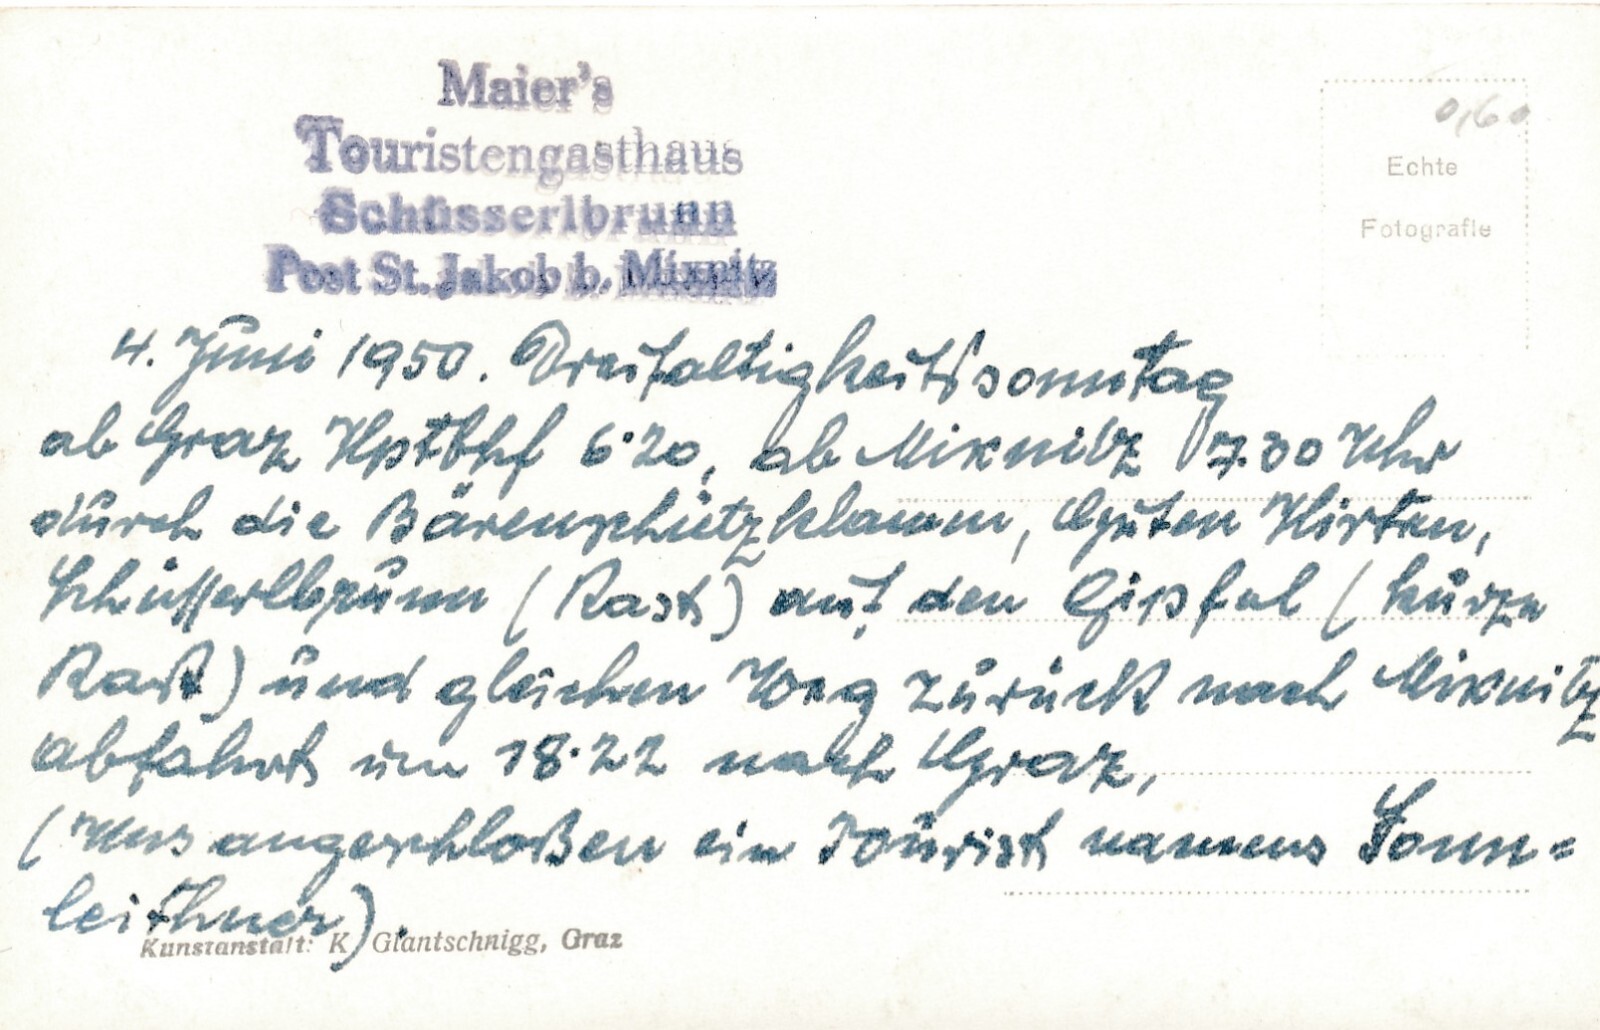 Maier's
Touristengasthaus
Schüsserlbrunn
Post St. Jakob b. Mixnitz
0,60
Echte
Fotografie
4. Juni 1950. Dreifaltigkeitssonntag
ab Graz Hptbhf 6·20, ab Mixnitz 7.30 Uhr
durch die Bärenschützklamm, Guten Hirten,
Schüsserlbrunn (Rast) auf den Gipfel (kurze
Rast) und gleichen Weg zurück nach Mixnitz
abfahrt um 18·22 nach Graz,
(Uns angeschloßen ein Tourist namens Sonn=
leithner).
Kunstanstalt: K. Glantschnigg, Graz